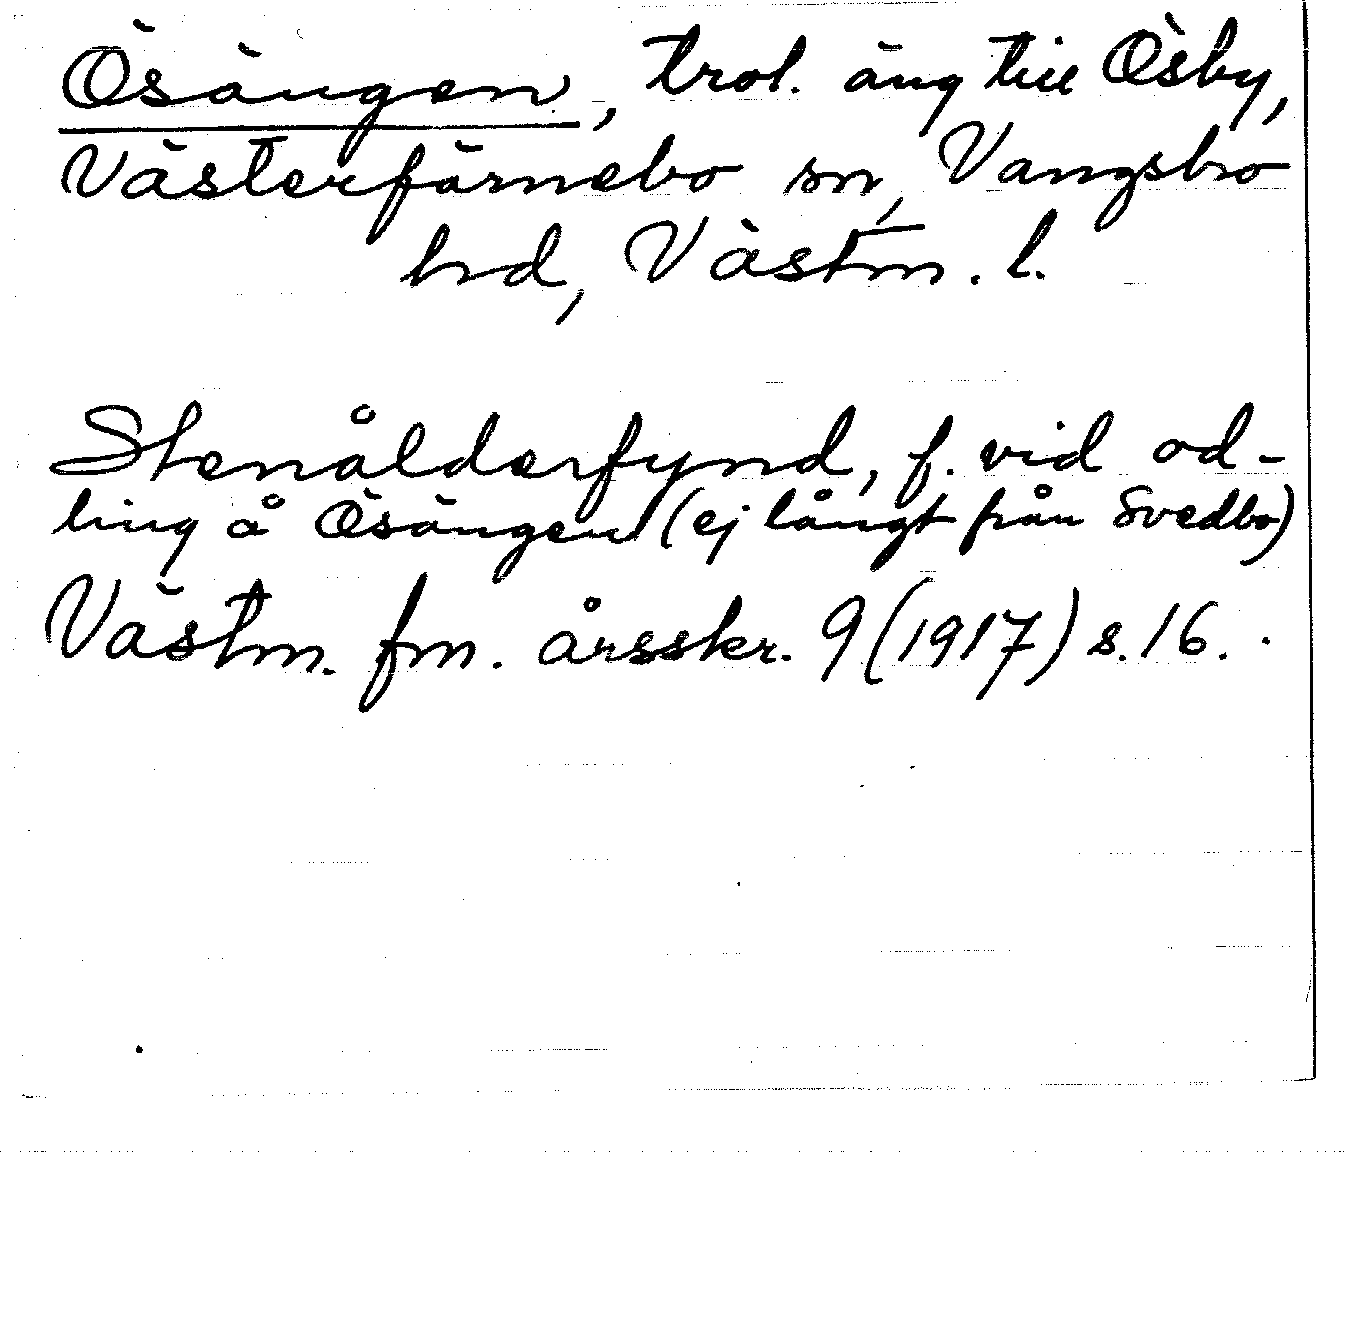 Ösängen, trol. äng till Ösby,
Västerfärnebo sn, Vangsbro
hd, Västm. l.
Stenålderfynd, f. vid od-
ling å Ösängen (ej långt från Svedbo)
Västm. fm. årsskr. 9 (1917) s. 16.